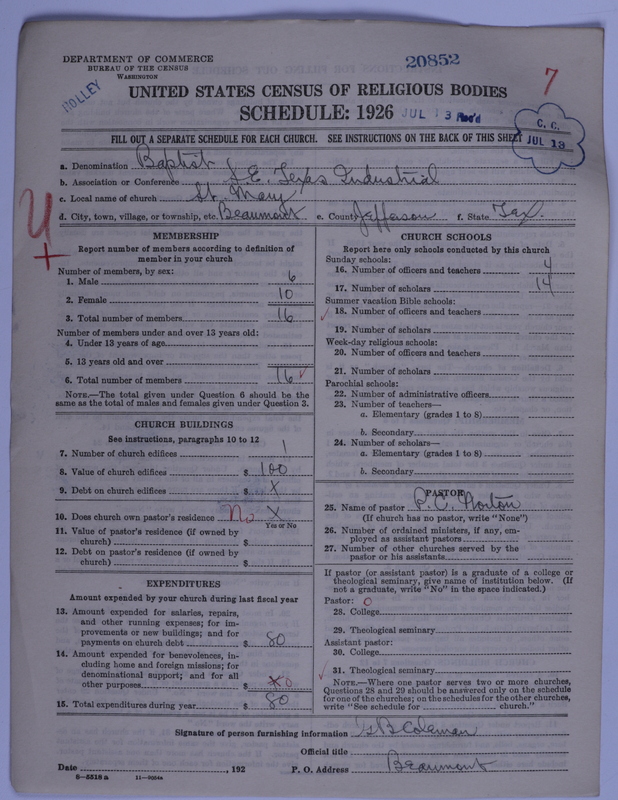 DEPARTMENT OF COMMERCE
BUREAU OF THE CENSUS
WASHINGTON
20852
7
HOLLEY
UNITED STATES CENSUS OF RELIGIOUS BODIES
SCHEDULE: 1926
JUL 13 Rec'd
C. C.
JUL 13
FILL OUT A SEPARATE SCHEDULE FOR EACH CHURCH. SEE INSTRUCTIONS ON THE BACK OF THIS SHEET
a. Denomination Baptist
b. Association or Conference S. E. Texas Industrial
c. Local name of church St. Mary
d. City, town, village, or township, etc. Beaumont e. County Jefferson f. State Tex.
MEMBERSHIP
Report number of members according to definition of
member in your church
Number of members, by sex:
1. Male 6
2. Female 10
3. Total number of members 16
Number of members under and over 13 years old:
4. Under 13 years of age
5. 13 years old and over
6. Total number of members 16 ✓
NOTE.—The total given under Question 6 should be the
same as the total of males and females given under Question 3.
CHURCH BUILDINGS
See instructions, paragraphs 10 to 12
7. Number of church edifices 1
8. Value of church edifices $ 100
9. Debt on church edifices $ X
10. Does church own pastor's residence No X
Yes or No
11. Value of pastor's residence (if owned by
church) $
12. Debt on pastor's residence (if owned by
church) $
EXPENDITURES
Amount expended by your church during last fiscal year
13. Amount expended for salaries, repairs,
and other running expenses; for im-
provements or new buildings; and for
payments on church debt $ 80
14. Amount expended for benevolences, in-
cluding home and foreign missions; for
denominational support; and for all
other purposes $ X 0
15. Total expenditures during year $ 80
CHURCH SCHOOLS
Report here only schools conducted by this church
Sunday schools:
16. Number of officers and teachers 4
17. Number of scholars 14
Summer vacation Bible schools:
✓ 18. Number of officers and teachers
19. Number of scholars
Week-day religious schools:
20. Number of officers and teachers
21. Number of scholars
Parochial schools:
22. Number of administrative officers
23. Number of teachers—
a. Elementary (grades 1 to 8)
b. Secondary
24. Number of scholars—
a. Elementary (grades 1 to 8)
b. Secondary
PASTOR
25. Name of pastor P. C. Norton
(If church has no pastor, write "None")
26. Number of ordained ministers, if any, em-
ployed as assistant pastors
27. Number of other churches served by the
pastor or his assistants
If pastor (or assistant pastor) is a graduate of a college or
theological seminary, give name of institution below. (If
not a graduate, write "No" in the space indicated.)
Pastor: 0
28. College
29. Theological seminary
Assistant pastor:
30. College
✓ 31. Theological seminary
NOTE.—Where one pastor serves two or more churches,
Questions 28 and 29 should be answered only on the schedule
for one of the churches; on the schedules for the other churches,
write "See schedule for church."
Signature of person furnishing information B Coleman
Official title
Date , 192 P. O. Address Beaumont
8—5518 a